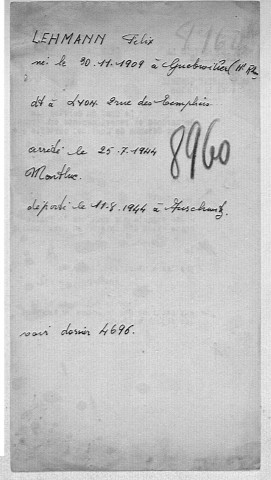 LEHMANN Felix
né le 20.11.1909 à Guebwiller (Ht Rh
dt à LYON 2 rue des Templiers
arrêté le 25.7.1944
8960
Montluc.
déporté le 11.8.1944 à Auschwitz.
voir dossier 4696.